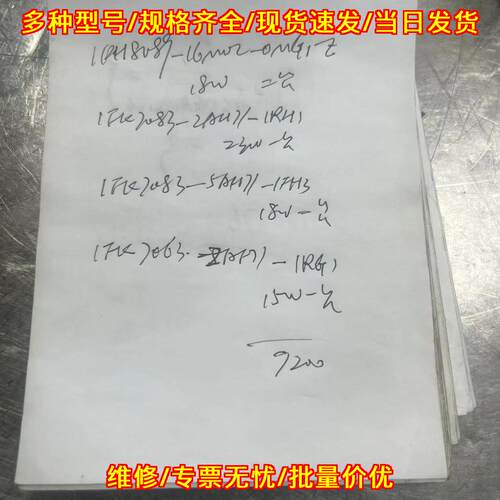 多种型号/规格齐全/现货速发/当日发货
1PH8089-1
18W 二台
1FK7083-2AH71-1RH1
23W 一台
1FK7083-5AH71-1FH3
18W 一台
1FK7063- AF71-1RG1
15W 一台
9200
维修/专票无忧/批量价优